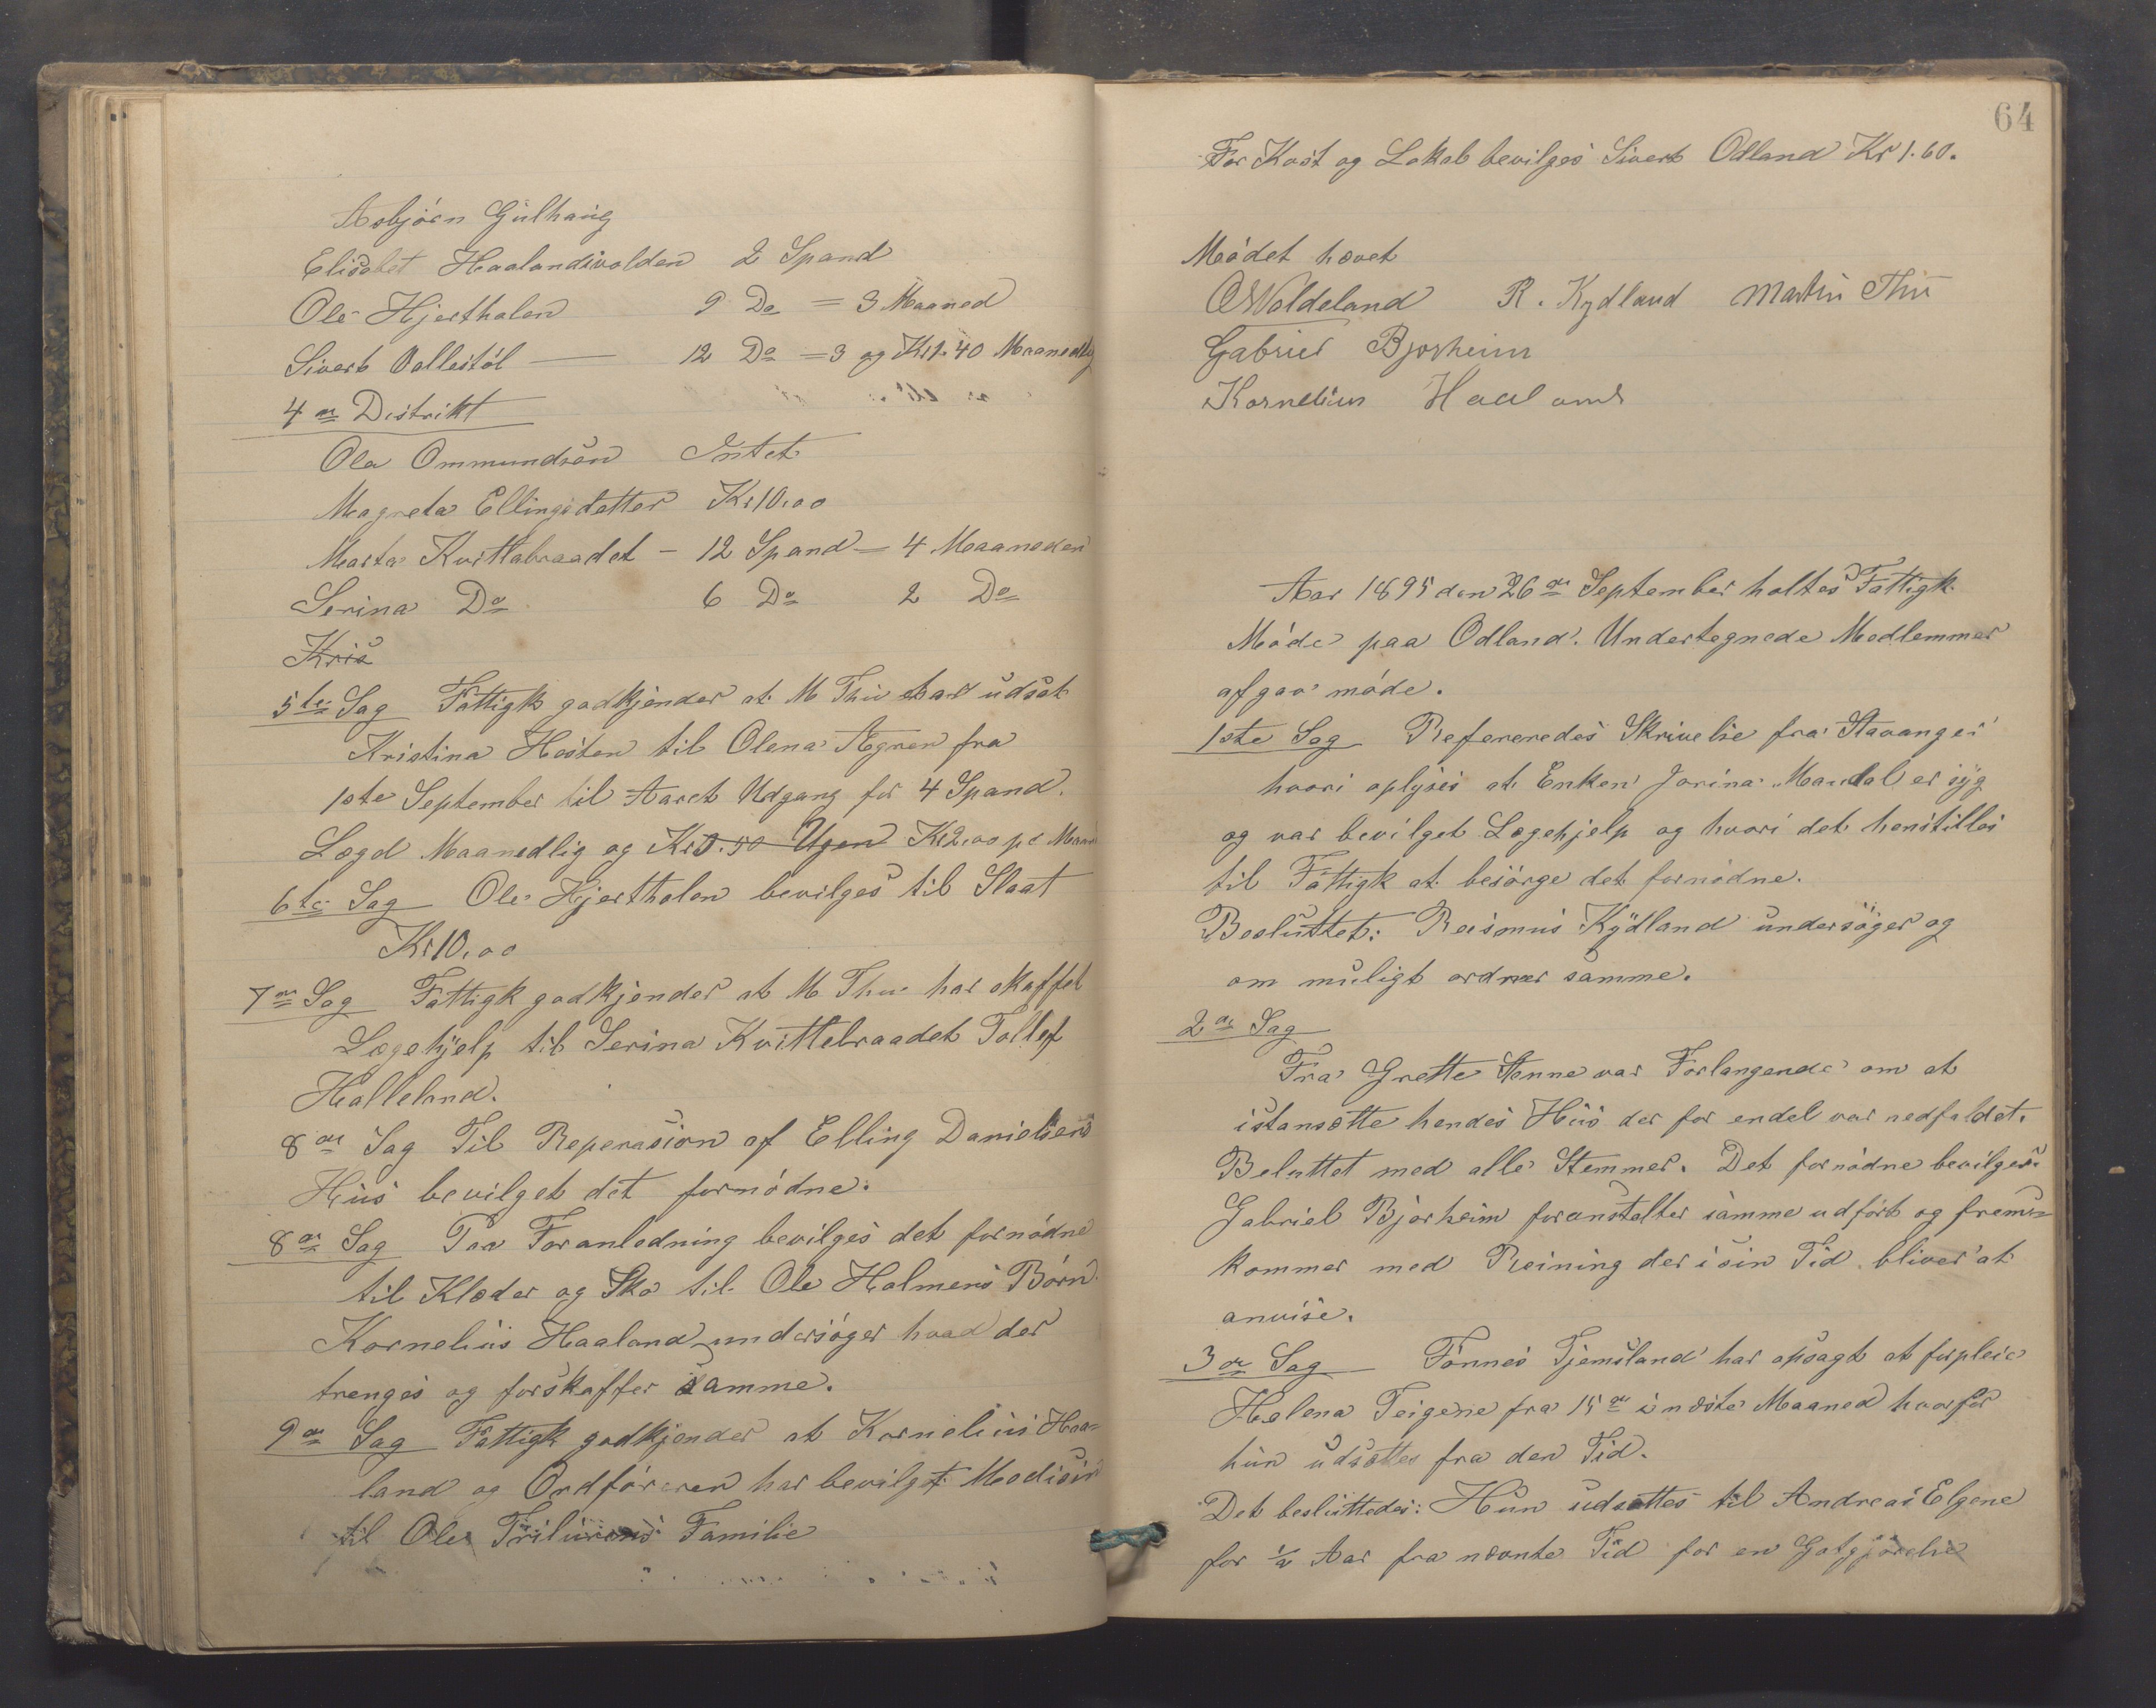 Asbjörn Gülhaug
Elisabet Haalandsvolden 2 Spand
Ole Hjertholen 9 Do = 3 Maaned
Sivert Vallestöl 12 Do = 3 og Kr 1.40 Maanedlig
4de Distrikt
Ola Ommundsen Intet
Magreta Ellingsdatter Kr 10.00
Marta Kvitlabraadet - 12 Spand = 4 Maaneder
Serina Do 6 Do 2 Do
Kris
5te Sag Fattigk godkjender at M Thu har udsat
Kristina Hesten til Olena Ægren fra
1ste September til Aaret Udgang for 4 Spand
Lægd Maanedlig og Kr 0.50 Ugen Kr 2.00 pr Maan
6te Sag Ole Hjertholen bevilges til Slaat
Kr 10.00
7de Sag Fattigk godkjender at M Thu har skaffet
Lægehjelp til Serina Kvittebraadet Tollef
Helleland.
8de Sag Til Reperasion af Elling Danielsens
Hus bevilget det fornödne.
8de Sag Paa Foranledning bevilges det fornödne
til Klæder og Sko til Ole Holmens Börn
Kornelius Haaland undersöger hvad der
trenges og forskaffer samme.
9de Sag Fattigk godkjender at Kornelius Haa-
land og Ordföreren har bevilget Medisin
til Ole Familie
64
For Kost og Lokal bevilges Sivert Odland Kr 1.60.
Mödet hævet
Voldeland R. Kydland Martin Thu
Gabriel Bjorheim
Kornelius Haaland
Aar 1895 den 26de September holtes Fattigk
Möde paa Odland. Undertegnede Medlemmer
afgav möde.
1ste Sag Refereredes Skrivelse fra Stavanger
hvori oplyses at Enken Jorina Maudal er syg
og var bevilget Lægehjelp og hvori det henstilles
til Fattigk at besörge det fornödne.
Besluttet: Rasmus Kydland undersöger og
om muligt ordner samme.
2de Sag
Fra Grette Anne var Forlangende om at
istansætte hendes Hus der for endel var nedfaldet.
Beluttet med alle Stemmer. Det fornödne bevilges.
Gabriel Bjorheim foranstalter samme udfört og frem-
kommer med Reining der i sin Tid bliver at
anvise.
3de Sag Tönnes Tjemsland har opsagt at forpleie
Helena Teigene fra 15de i næste Maaned hvorfor
hun udsættes fra den Tid.
Det besluttedes: Hun udsættes til Andreas Elgene
for ½ Aar fra nævnte Tid for en Gotgjörelse